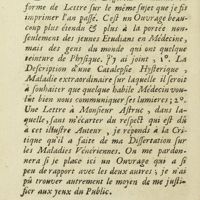 forme de Lettre sur le même sujet que je fis
imprimer l'an passé. C'est un Ouvrage beau-
coup plus étendu & plus à la portée non-
seulement des jeunes Etudians en Médecine,
mais des gens du monde qui ont quelque
teinture de Physique. J'y ai joint, 1°. La
Description d'une Catalepsie Hysterique,
Maladie extraordinaire sur laquelle il seroit
à souhaiter que quelque habile Médecin vou-
lût bien nous communiquer ses lumieres; 2°.
Une Lettre à Monsieur Astruc, dans la-
quelle, sans m'écarter du respect qui est dû
à cet illustre Auteur, je répons à la Cri-
tique qu'il a faite de ma Dissertation sur
les Maladies Véneriennes. On me pardon-
nera si je place ici un Ouvrage qui a si
peu de rapport avec les deux autres; je n'ai
pû trouver autrement le moyen de me justi-
fier aux yeux du Public.